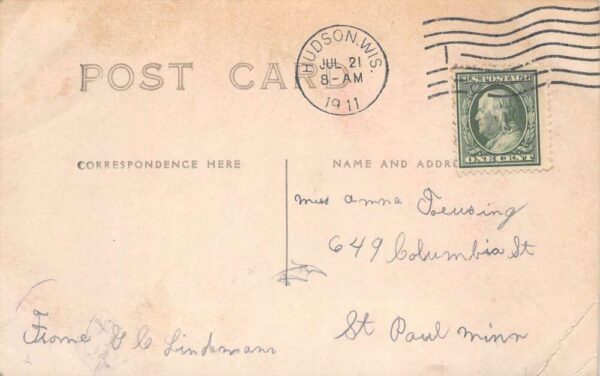 POST CARD
HUDSON, WIS.
JUL 21
8-AM
1911
U.S. POSTAGE
ONE CENT
CORRESPONDENCE HERE
NAME AND ADDRE
miss anna
649 Columbia St
St Paul minn
Frome G C Lindemann